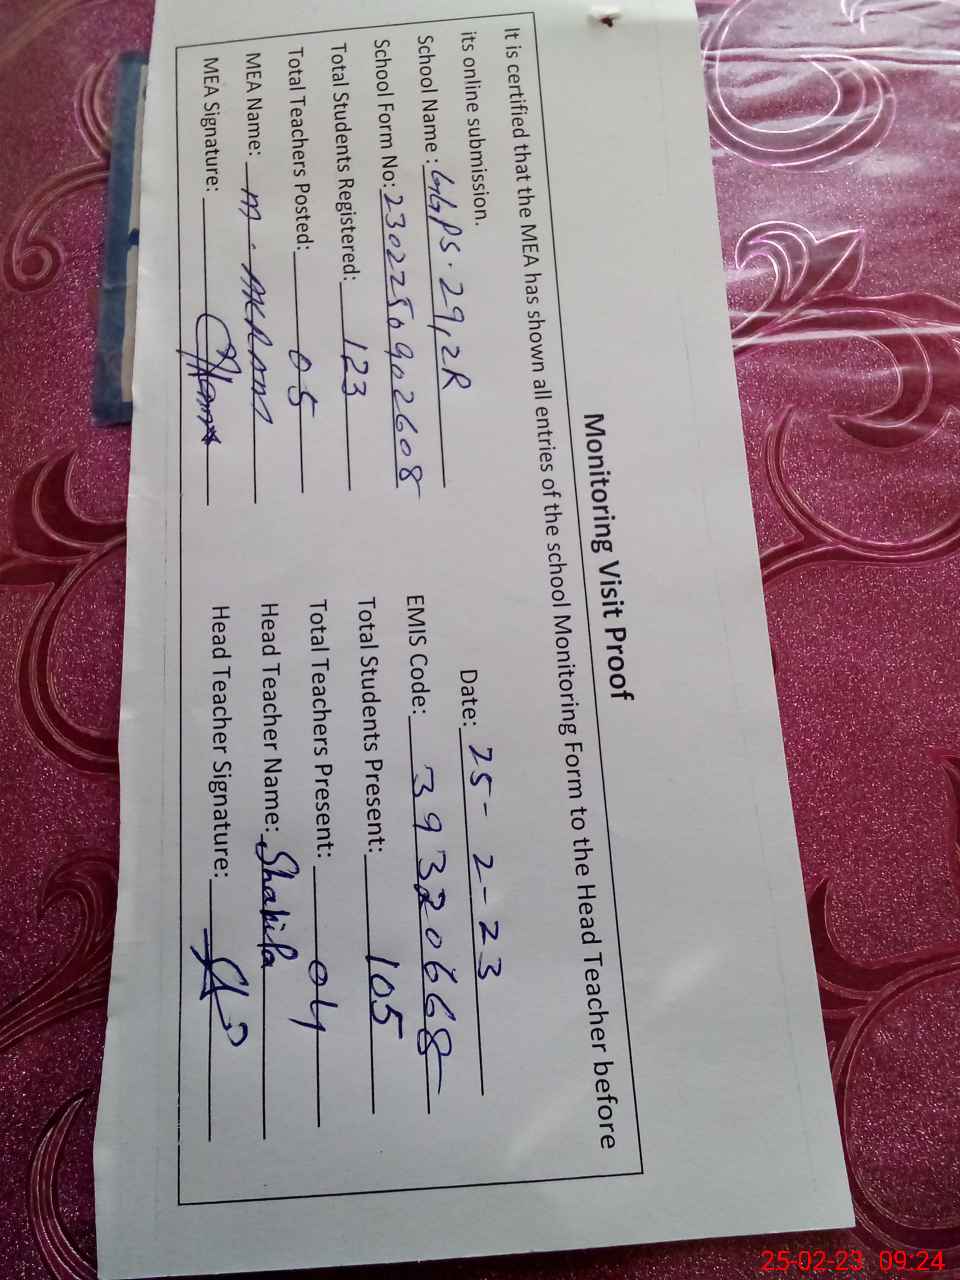 Monitoring Visit Proof
It is certified that the MEA has shown all entries of the school Monitoring Form to the Head Teacher before
its online submission.
Date: 25-2-23
School Name: GGPS. 29,2R
EMIS Code: 39320668
School Form No: 2302250902608
Total Students Present: 105
Total Students Registered: 123
Total Teachers Present: 04
Total Teachers Posted: 05
Head Teacher Name: Shakila
MEA Name: M. AKRAM
Head Teacher Signature:
MEA Signature:
25-02-23 09:24